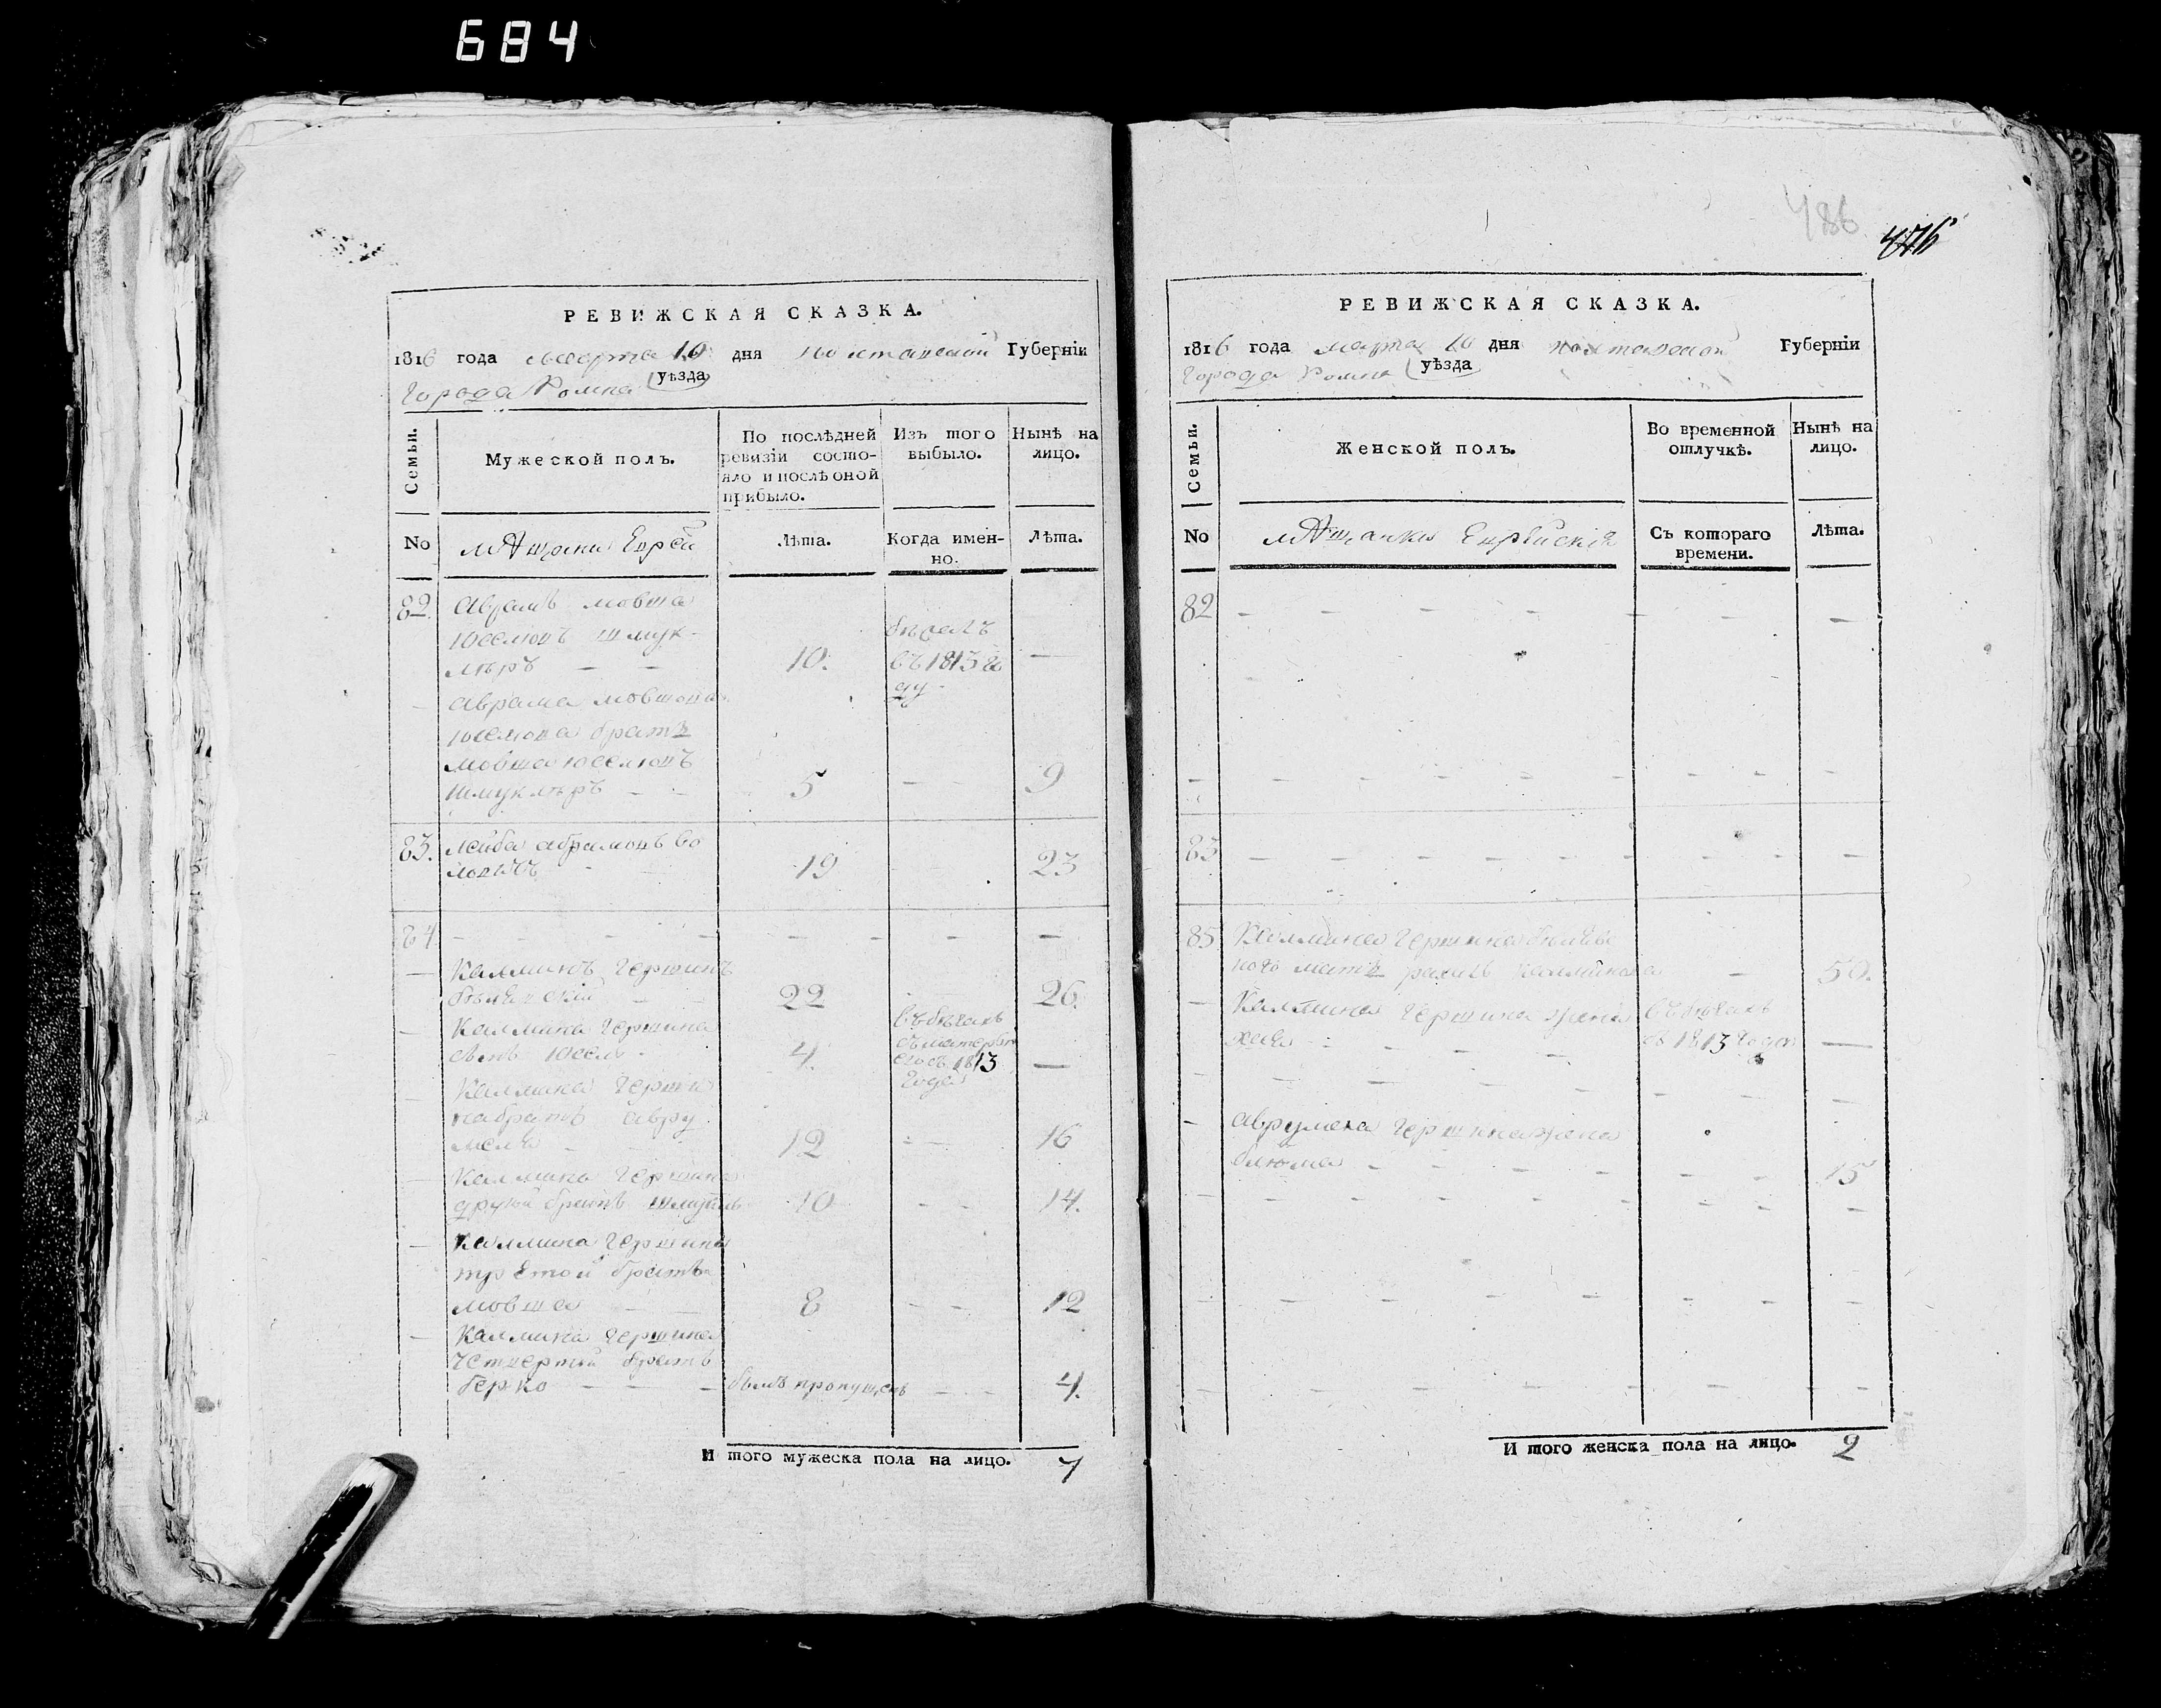 684
РЕВИЖСКАЯ СКАЗКА.
1816 года марта 10 дня полтавской Губерніи
города Ромна уѣзда
Семьи.
Мужеской полъ.
По послѣдней
ревизіи состо-
яло и послѣ оной
прибыло.
Изъ того
выбыло.
Нынѣ на
лицо.
No
мѣщани Еврѣи
Лѣта.
Когда имен-
но.
Лѣта.
82.
Абрамъ мовша
Юселювъ шмук-
лѣръ — —
10.
въ 1813 го
ду
—
Аврама мовшова
юселюва братъ
мовша юселювъ
шмуклѣръ - -
5
9
83.
Лейба абрамовъ
19
23
84
Калминъ гершинъ
22
26.
Калмина гершина
сынъ Юсель -
4.
въ бѣгахъ
съ матерью
его съ 1813
года
—
Калмина герши
на братъ авру
мель
12
16
Калмина гершина
другой братъ шмуйль
10
14.
Калмина гершина
третой братъ
мовша
8
12
Калмина гершина
четвертый братъ
берко — — —
былъ пропущенъ
4.
И того мужеска пола на лицо. 7
486
476
РЕВИЖСКАЯ СКАЗКА.
1816 года марта 10 дня полтавской Губерніи
города Ромна уѣзда
Семьи.
Женской полъ.
Во временной
отлучкѣ.
Нынѣ на
лицо.
No
мѣщанки Еврѣйскія
Съ котораго
времени.
Лѣта.
82
83
85
Калмина гершина
мать
50.
Калмина гершина жена
хая
въ бѣгахъ
съ 1813 года
—
Аврумела гершина жена
блюма
15
И того женска пола на лицо. 2